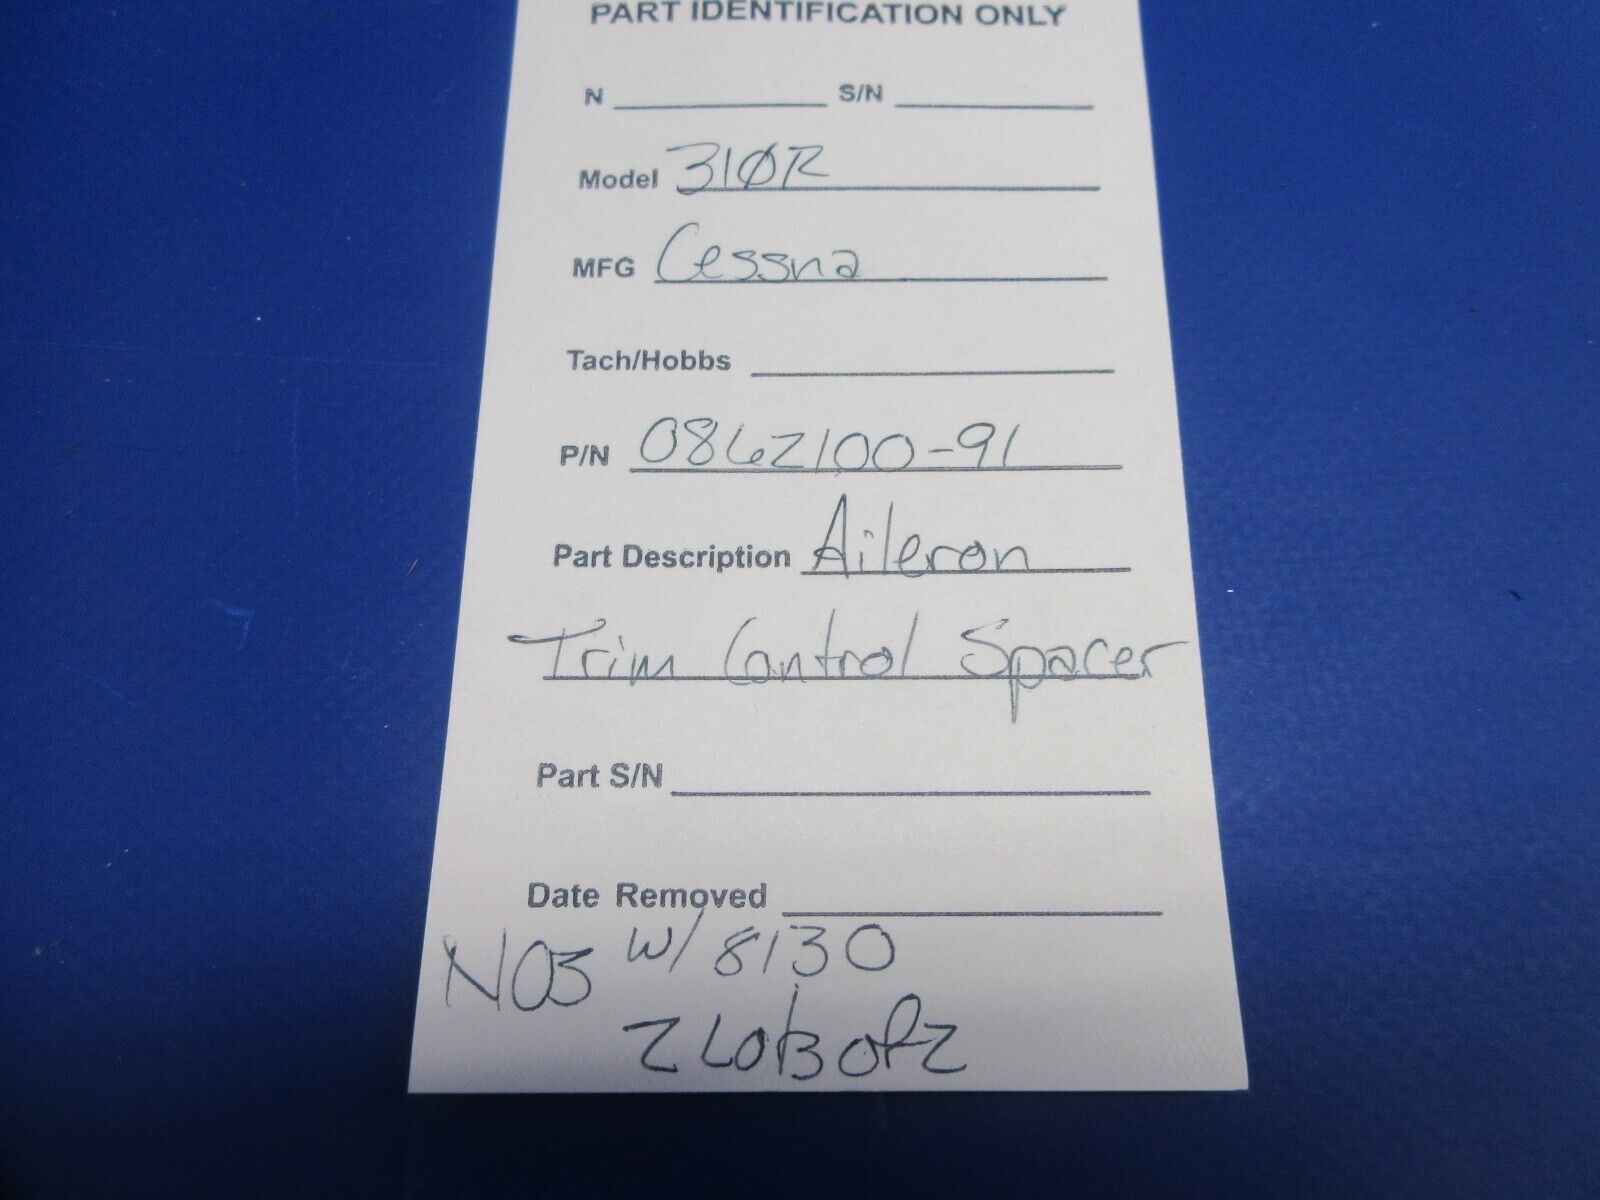 PART IDENTIFICATION ONLY
N S/N
Model 310R
MFG Cessna
Tach/Hobbs
P/N 0862100-91
Part Description Aileron
Trim Control Spacer
Part S/N
Date Removed
NOS w/ 8130